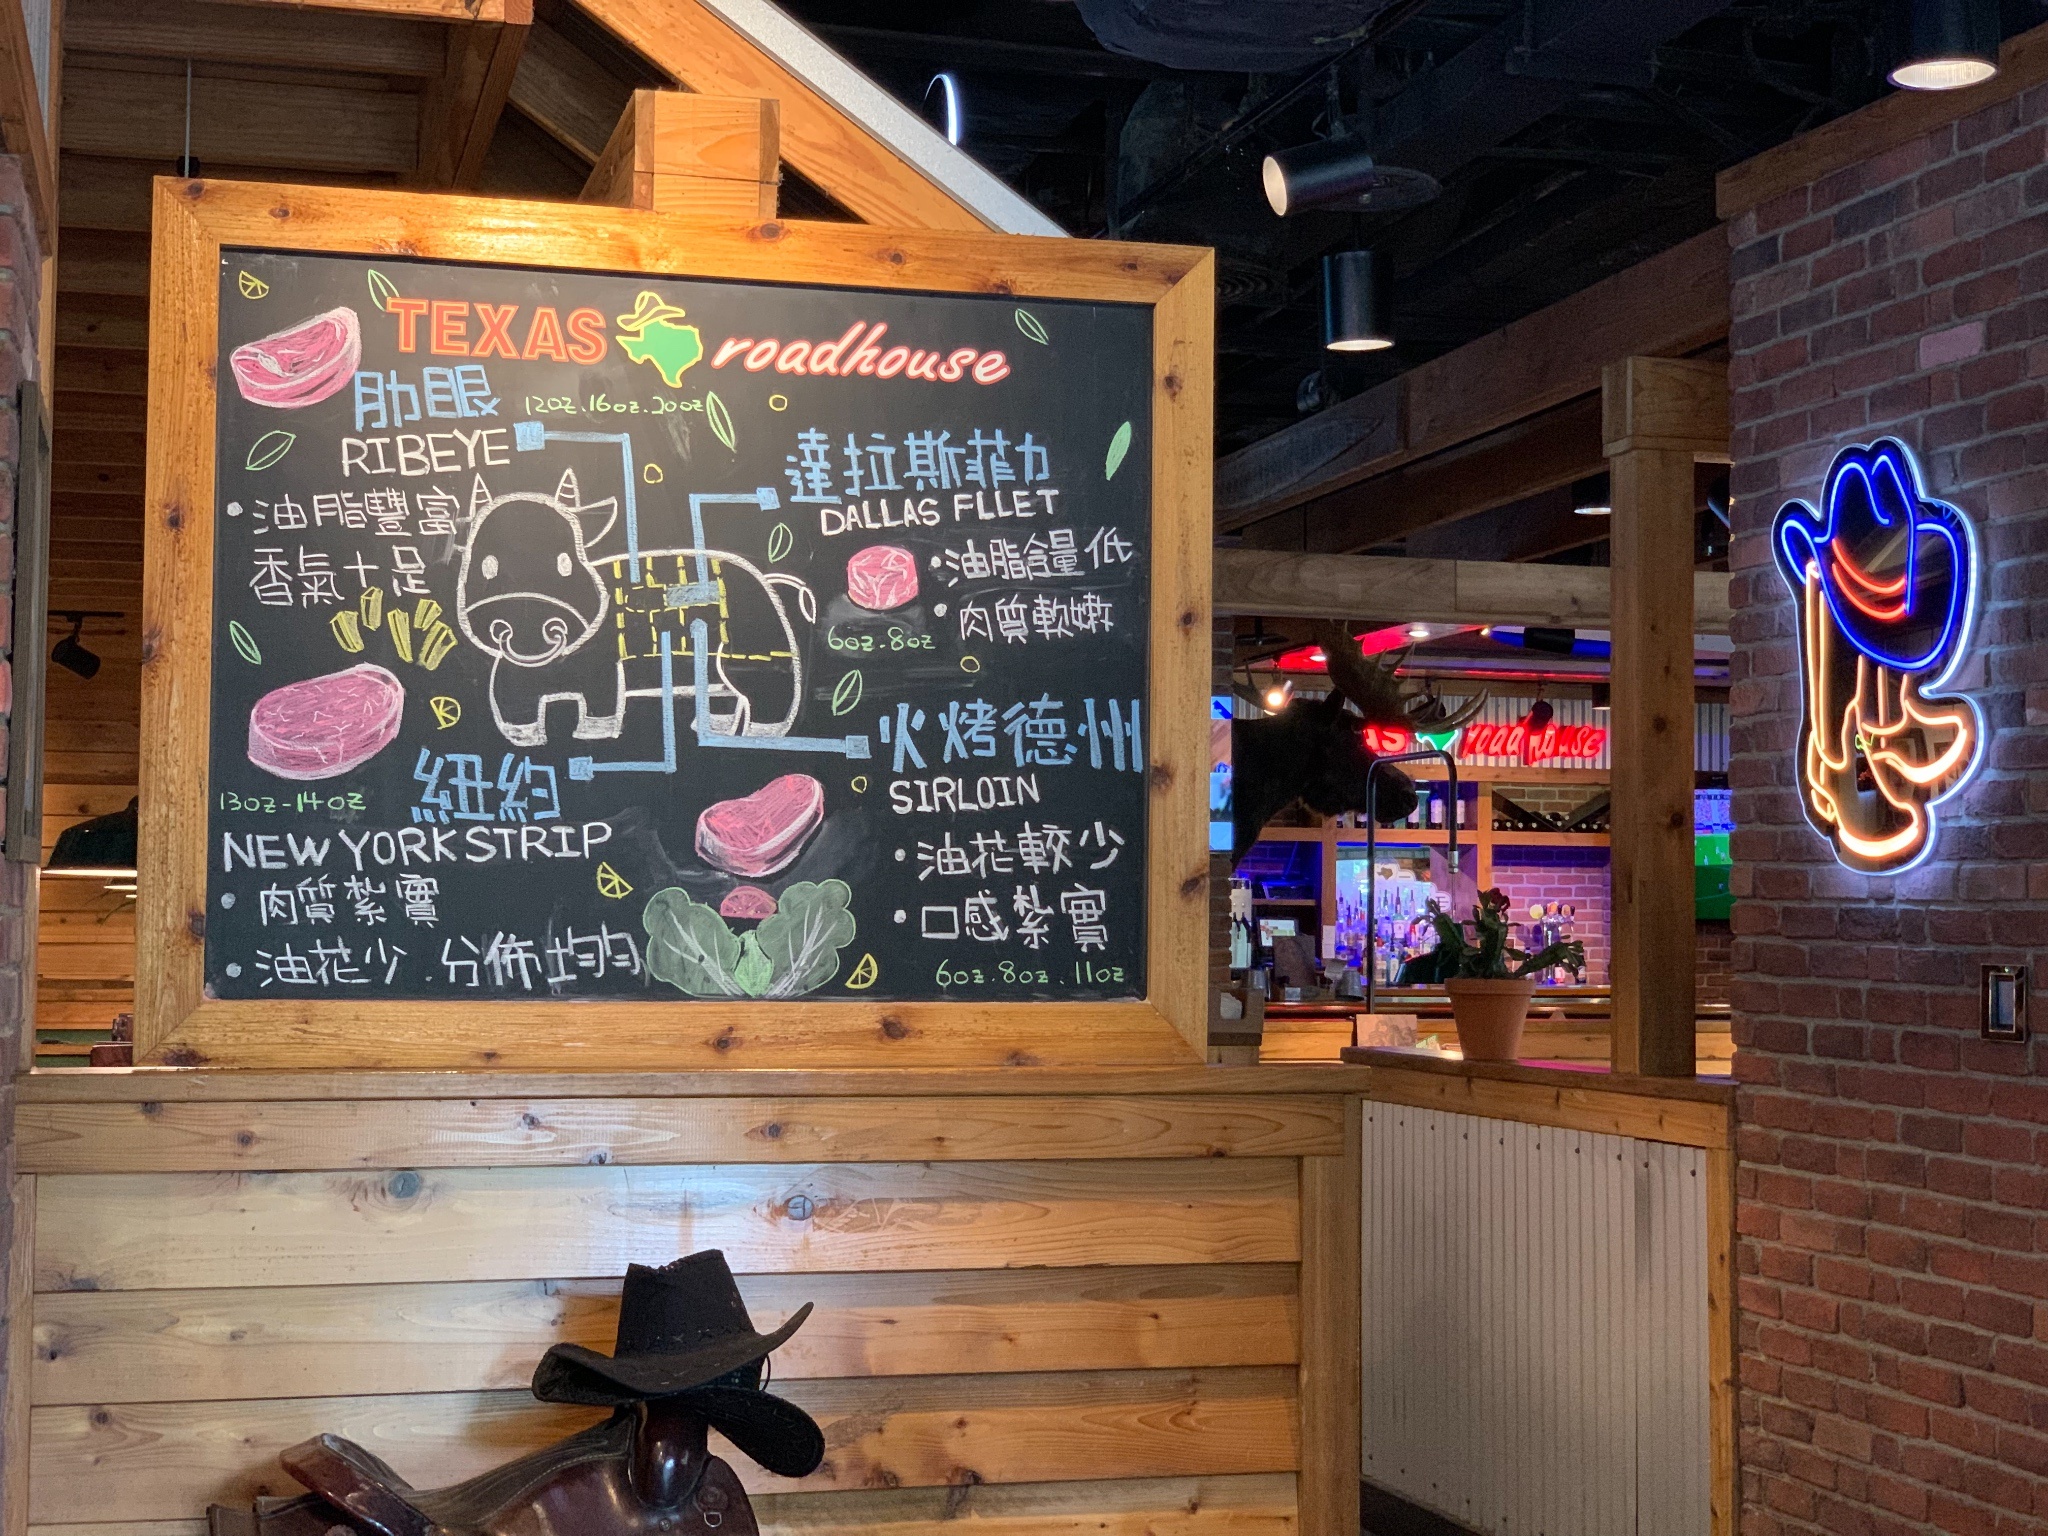 TEXAS roadhouse
肋眼
12oz.16oz.20oz
RIBEYE
• 油脂豐富
香氣十足
達拉斯菲力
DALLAS FLLET
• 油脂含量低
• 肉質軟嫩
6oz.8oz
紐約
13oz-14oz
NEW YORK STRIP
• 肉質紮實
• 油花少.分佈均勻
火烤德州
SIRLOIN
• 油花較少
• 口感紮實
6oz.8oz.11oz
roadhouse